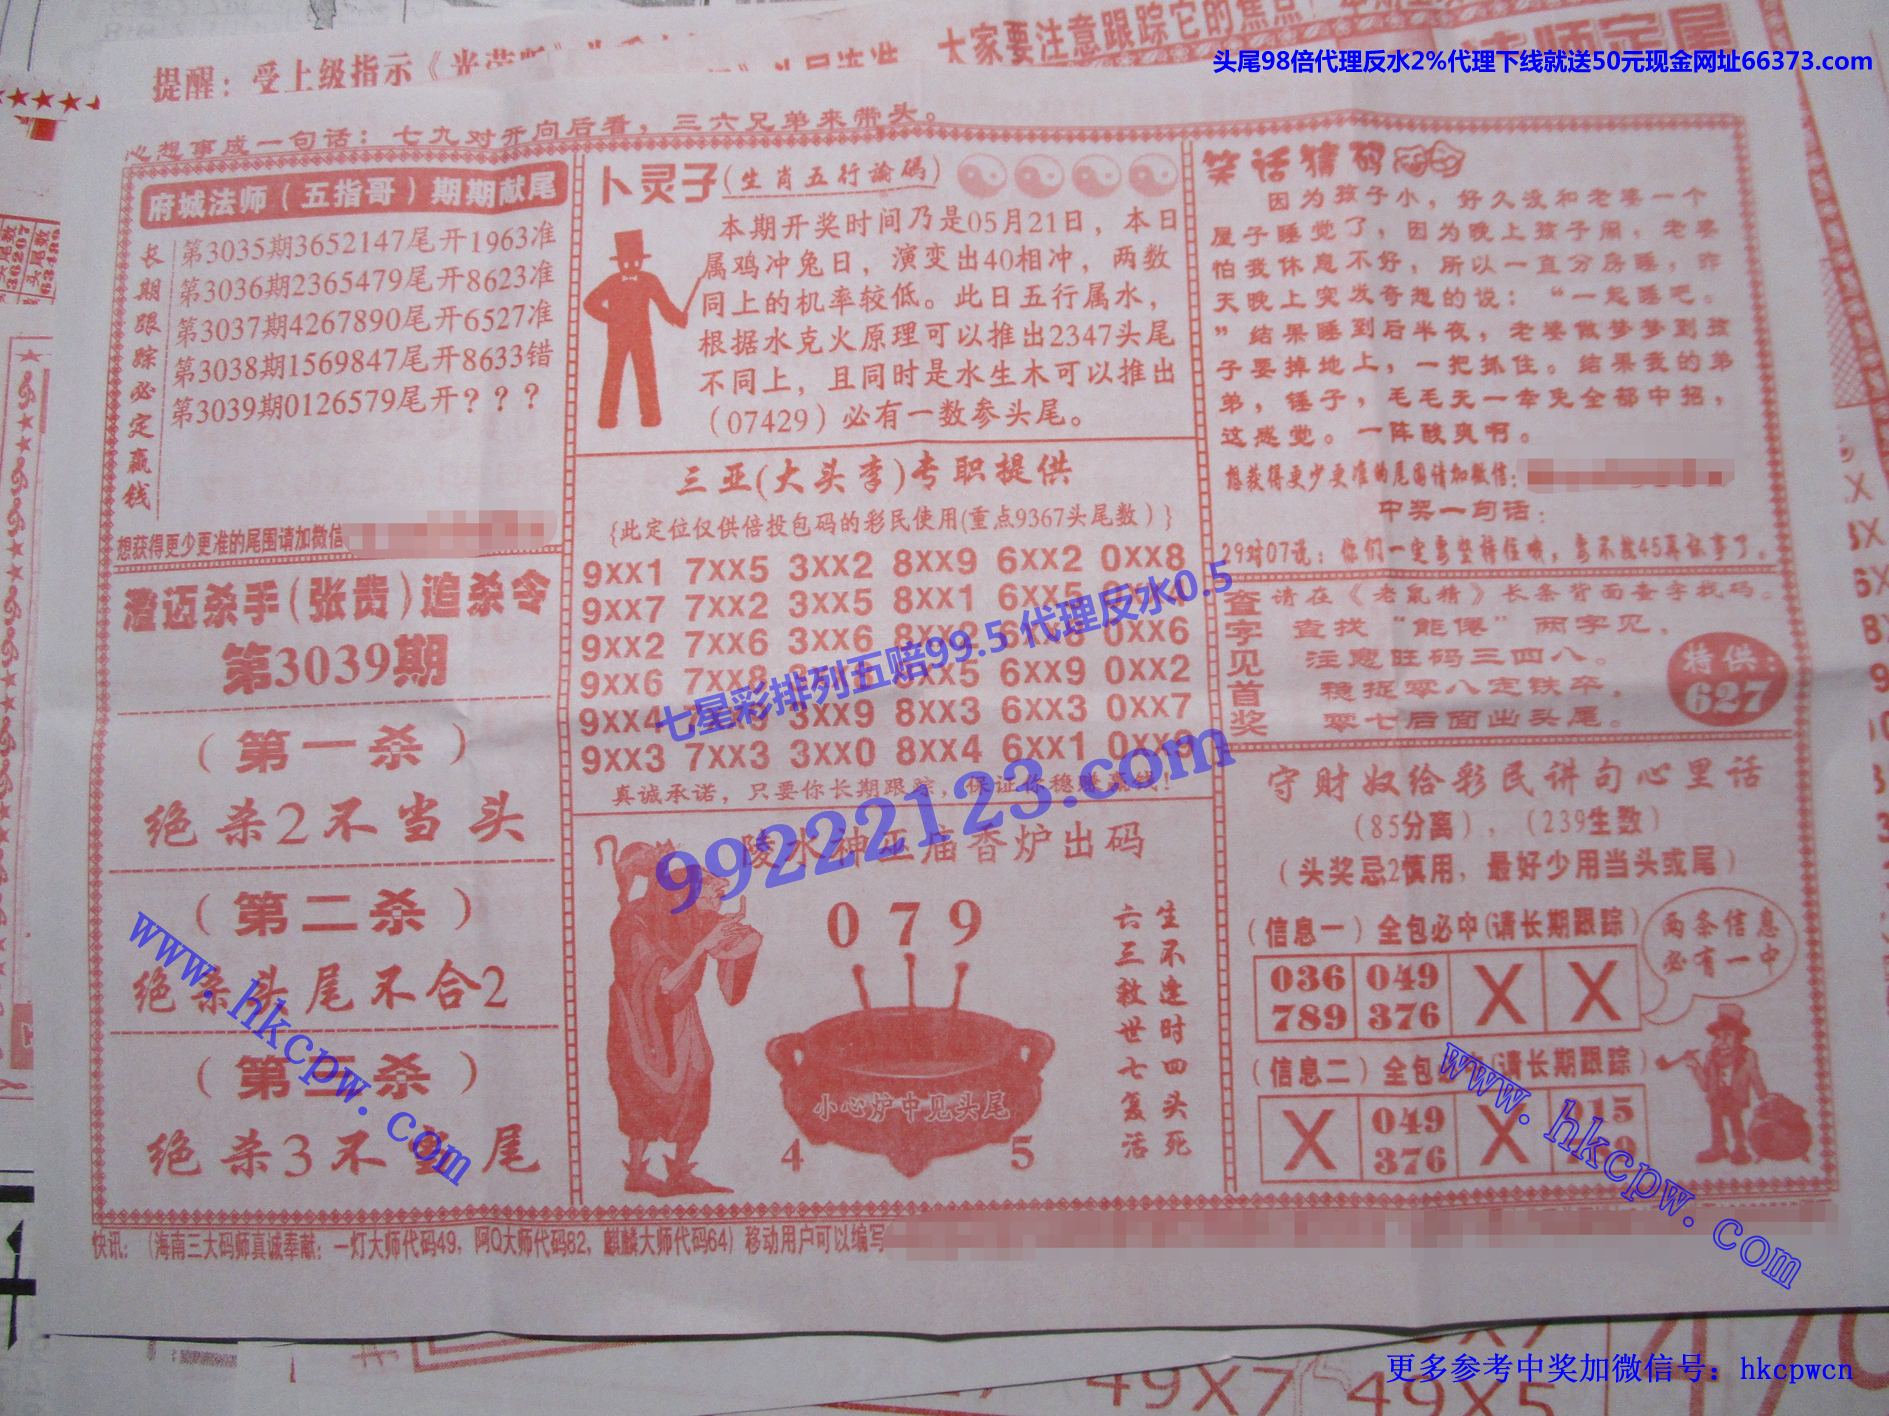 头尾98倍代理反水2%代理下线就送50元现金网址66373.com
大家要注意跟踪它的焦点
提醒：受上级指示
心想事成一句话：七九对开向后看，三六兄弟来带头。
府城法师（五指哥）期期献尾
长期跟踪必定赢钱
第3035期3652147尾开1963准
第3036期2365479尾开8623准
第3037期4267890尾开6527准
第3038期1569847尾开8633错
第3039期0126579尾开？？？
想获得更少更准的尾围请加微信
澄迈杀手（张贵）追杀令
第3039期
（第一杀）
绝杀2不当头
（第二杀）
绝杀头尾不合2
（第三杀）
绝杀3不当尾
卜灵子（生肖五行論碼）
本期开奖时间乃是05月21日，本日
属鸡冲兔日，演变出40相冲，两数
同上的机率较低。此日五行属水，
根据水克火原理可以推出2347头尾
不同上，且同时是水生木可以推出
（07429）必有一数参头尾。
三亚（大头李）专职提供
{此定位仅供倍投包码的彩民使用(重点9367头尾数）}
9XX1 7XX5 3XX2 8XX9 6XX2 0XX8
9XX7 7XX2 3XX5 8XX1 6XX5
9XX2 7XX6 3XX6 8XX2 0XX6
9XX6 7XX8 8XX5 6XX9 0XX2
9XX4 3XX9 8XX3 6XX3 0XX7
9XX3 7XX3 3XX0 8XX4 6XX1 0XX9
真诚承诺，只要你长期跟踪，保证你稳赚赢钱！
七星彩排列五赔99.5 代理反水0.5
99222123.com
陵水神巫庙香炉出码
079
生不逢时四头死
六三救世七复活
小心炉中见头尾
4 5
笑话猜码
因为孩子小，好久没和老婆一个
屋子睡觉了，因为晚上孩子闹，老婆
怕我休息不好，所以一直分房睡，昨
天晚上突发奇想的说：“一起睡吧。
”结果睡到后半夜，老婆做梦梦到孩
子要掉地上，一把抓住。结果我的弟
弟，锤子，毛毛无一幸免全部中招，
这感觉。一阵酸爽啊。
想获得更少更准的尾围请加微信：
中奖一句话：
29对07说：你们一定要坚持住哦，要不然45再
查字见首奖
请在《老鼠精》长条背面查字找码。
查找“能俾”两字见，
注意旺码三四八。
稳捉零八定铁卒，
零七后面出头尾。
特供：
627
守财奴给彩民讲句心里话
（85分离），（239生数）
（头奖忌2慎用，最好少用当头或尾）
（信息一）全包必中（请长期跟踪）
两条信息
必有一中
036 049 X X
789 376
（信息二）全包必中（请长期跟踪）
X 049 X
376
快讯：（海南三大码师真诚奉献：一灯大师代码49，阿Q大师代码82，麒麟大师代码64）移动用户可以编写
www.hkcpw.com
www.hkcpw.com
49X7 49X5
更多参考中奖加微信号：hkcpwcn